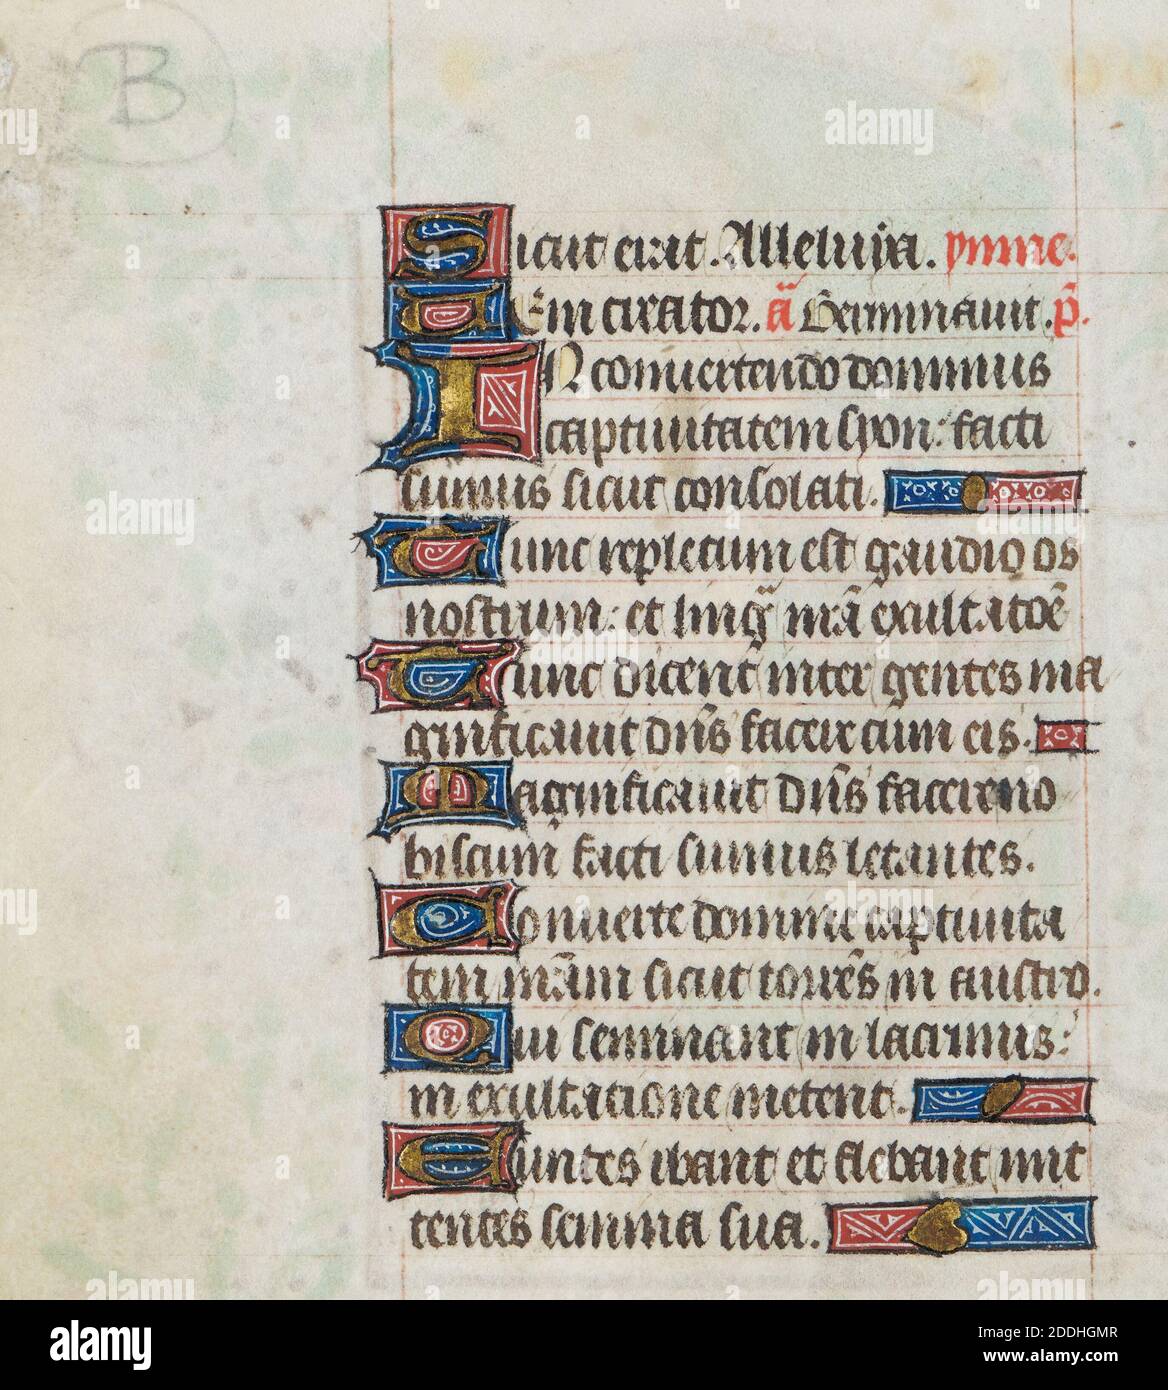 B
Sicut erat. Alleluya. ymne.
Uem cirator. ā Germinavit. p̄.
IN convertendo dominus
captiuitatem syon: facti
sumus sicut consolati.
Tunc repletum est gaudio os
nostrum: et ling̃ nr̄ā exultatōē
Tunc dicent inter gentes ma
gnificauit dn̄s facere cum eis.
Magnificauit dn̄s facere no
biscum facti sumus letantes.
Conuerte domine captiuita
tem nr̄ām sicut torrēs in austro.
Qui seminant in lacrimis:
in exultatione metent.
Euntes ibant et flebant mit
tentes semina sua.
alamy
Image ID: 2DDHGMR
www.alamy.com